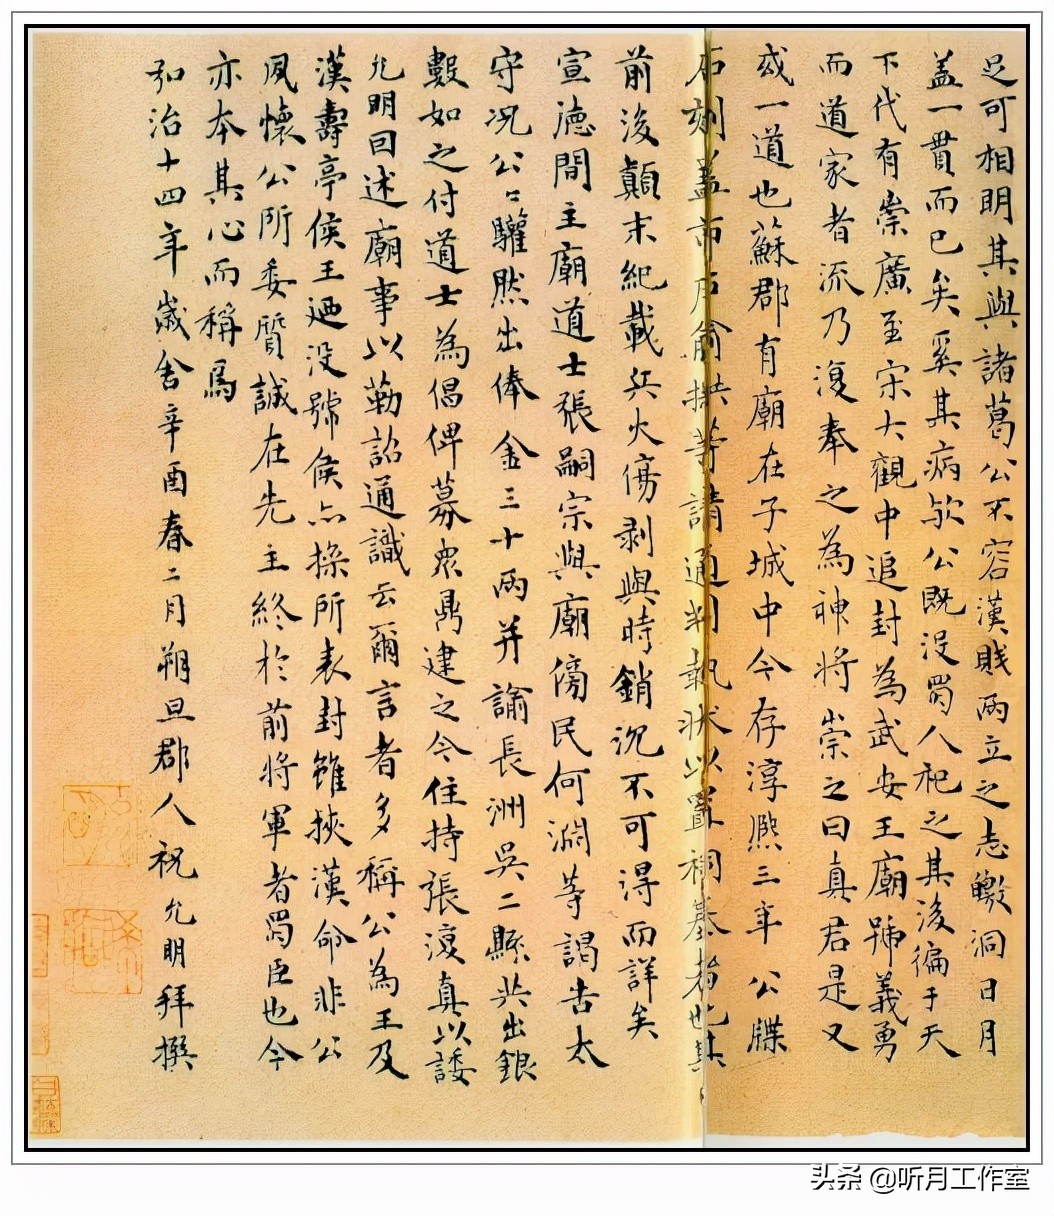 足可相明其與諸葛公不容漢賊兩立之志皦洞日月
蓋一貫而已矣奚其病欤公既没蜀人祀之其後徧于天
下代有崇廣至宋大觀中追封為武安王廟號義勇
而道家者流乃復奉之為神將崇之曰真君是又
或一道也蘇郡有廟在子城中今存淳熈三年公牒
石刻蓋市户俞拱等請通判執狀以置祠基者也其
前後顛末紀載兵火傷剥與時銷沉不可得而詳矣
宣德間主廟道士張嗣宗與廟傍民何渊等謁告太
守况公公驩然出俸金三十兩并諭長洲吳二縣共出銀
數如之付道士為倡俾募衆鼎建之今住持張復真以諉
允明囙述廟事以勒詔通識云爾言者多稱公為王及
漢壽亭侯王廼没號侯亦操所表封雖挾漢命非公
夙懷公所委質誠在先主終於前將軍者蜀臣也今
亦本其心而稱焉
弘治十四年歲舍辛酉春二月朔旦郡人祝允明拜撰
头条 @听月工作室